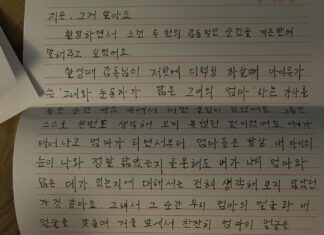 지은, 그거 알아요
촬영하면서 느낀 두 번의 감동적인 순간을 지은한테
말해주고 싶었어요.
촬영때 감독님이 저한테 디렉팅 하실때 아이유가
쓴 "그녀와 눈동자가 닮은 그녀의 엄마" 라는 가사를
스스로 한번도 생각해 보지 못했던 것이었어요. 아이가
태어나고 엄마가 되면서부터 엄마들은 항상 내 아이의
눈이 나와 정말 닮았는지 궁금해도 내가 나의 엄마와
닮은 데가 있는지에 대해서는 전혀 생각해 보지 않았던
것 같아요. 그래서 그 순간 우리 엄마의 얼굴과 내
얼굴을 거울 앞에서 찬찬히 엄마의 얼굴을